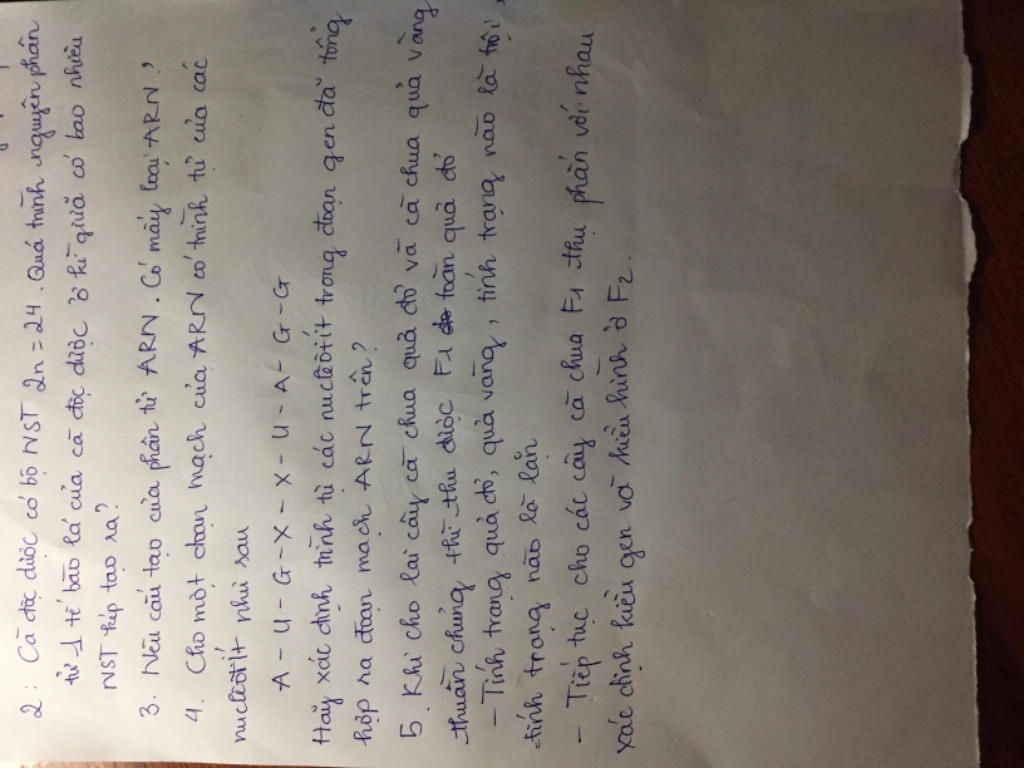 2: Cà độc dược có bộ NST 2n = 24. Quá trình nguyên phân
từ 1 tế bào lá của cà độc dược ở kì giữa có bao nhiêu
NST kép tạo ra?
3. Nêu cấu tạo của phân tử ARN. Có mấy loại ARN?
4. Cho một đoạn mạch của ARN có trình tự của các
nuclêôtit như sau
A - U - G - X - X - U - A - G - G
Hãy xác định trình tự các nuclêôtit trong đoạn gen đã tổng
hợp ra đoạn mạch ARN trên?
5. Khi cho lai cây cà chua quả đỏ và cà chua quả vàng
thuần chủng thì thu được F1 toàn quả đỏ
- Tính trạng quả đỏ, quả vàng, tính trạng nào là trội,
tính trạng nào là lặn
- Tiếp tục cho các cây cà chua F1 thụ phấn với nhau
xác định kiểu gen và kiểu hình ở F2.